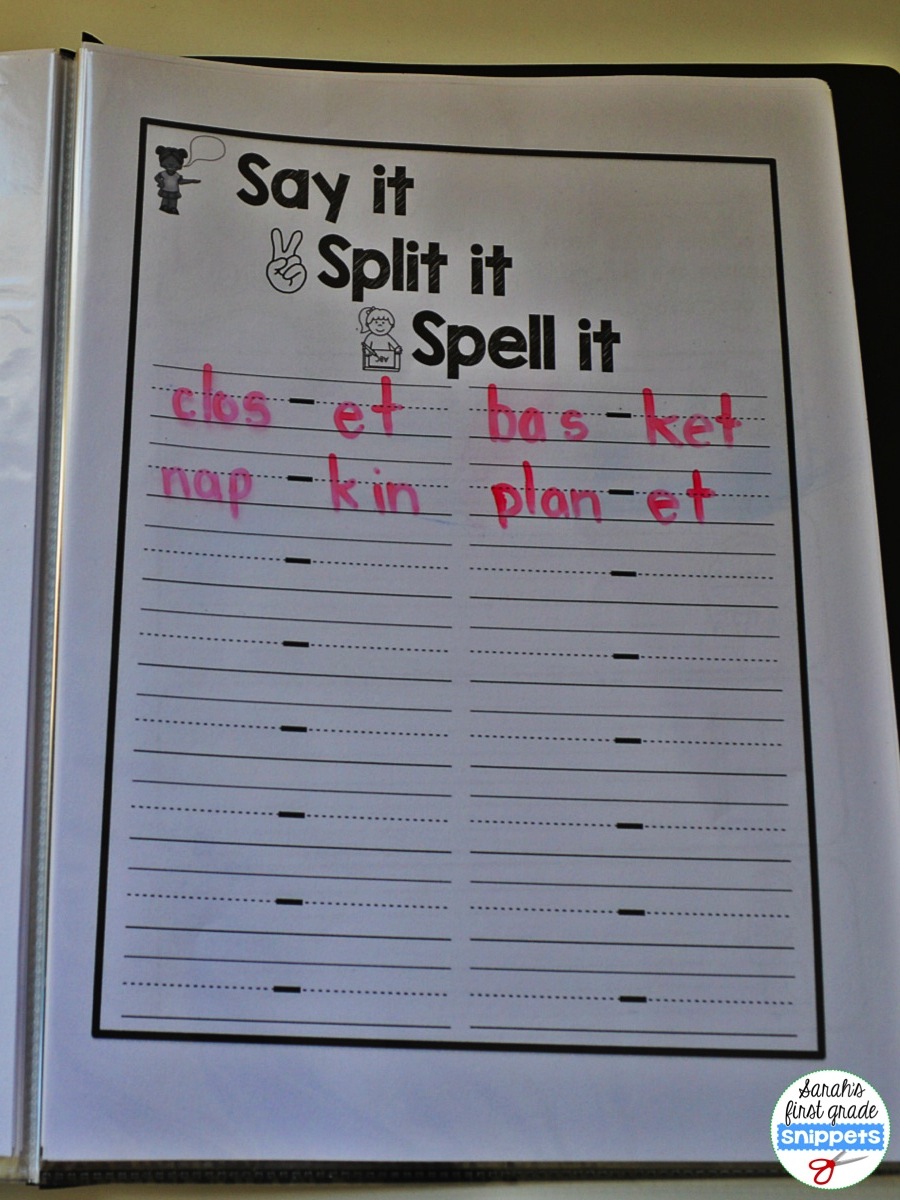 Say it
Split it
Spell it
clos - et bas - ket
nap - kin plan - et
Sarah's
first grade
snippets